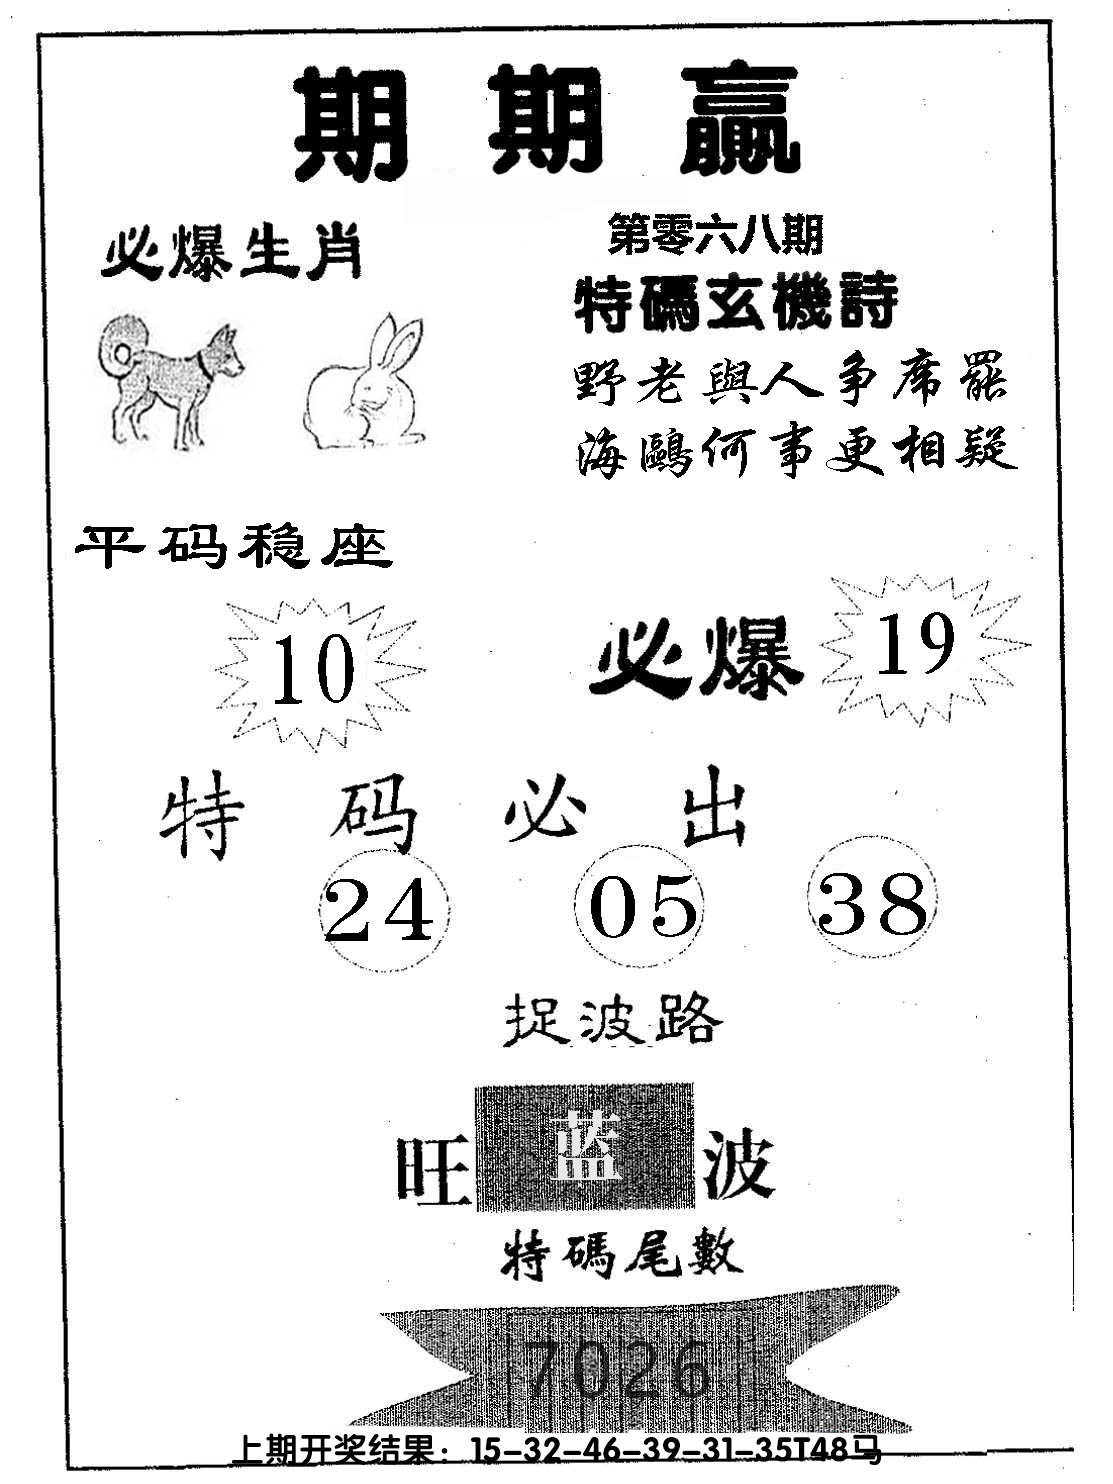 期期赢
必爆生肖
第零六八期
特碼玄機詩
野老與人争席罷
海鷗何事更相疑
平码稳座
10
必爆
19
特码必出
24 05 38
捉波路
旺蓝波
特碼尾數
7026
上期开奖结果：15-32-46-39-31-35T48马